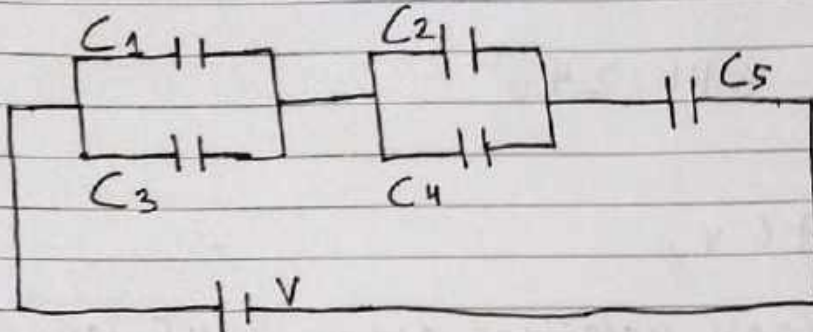 C1
C2
C5
C3
C4
V